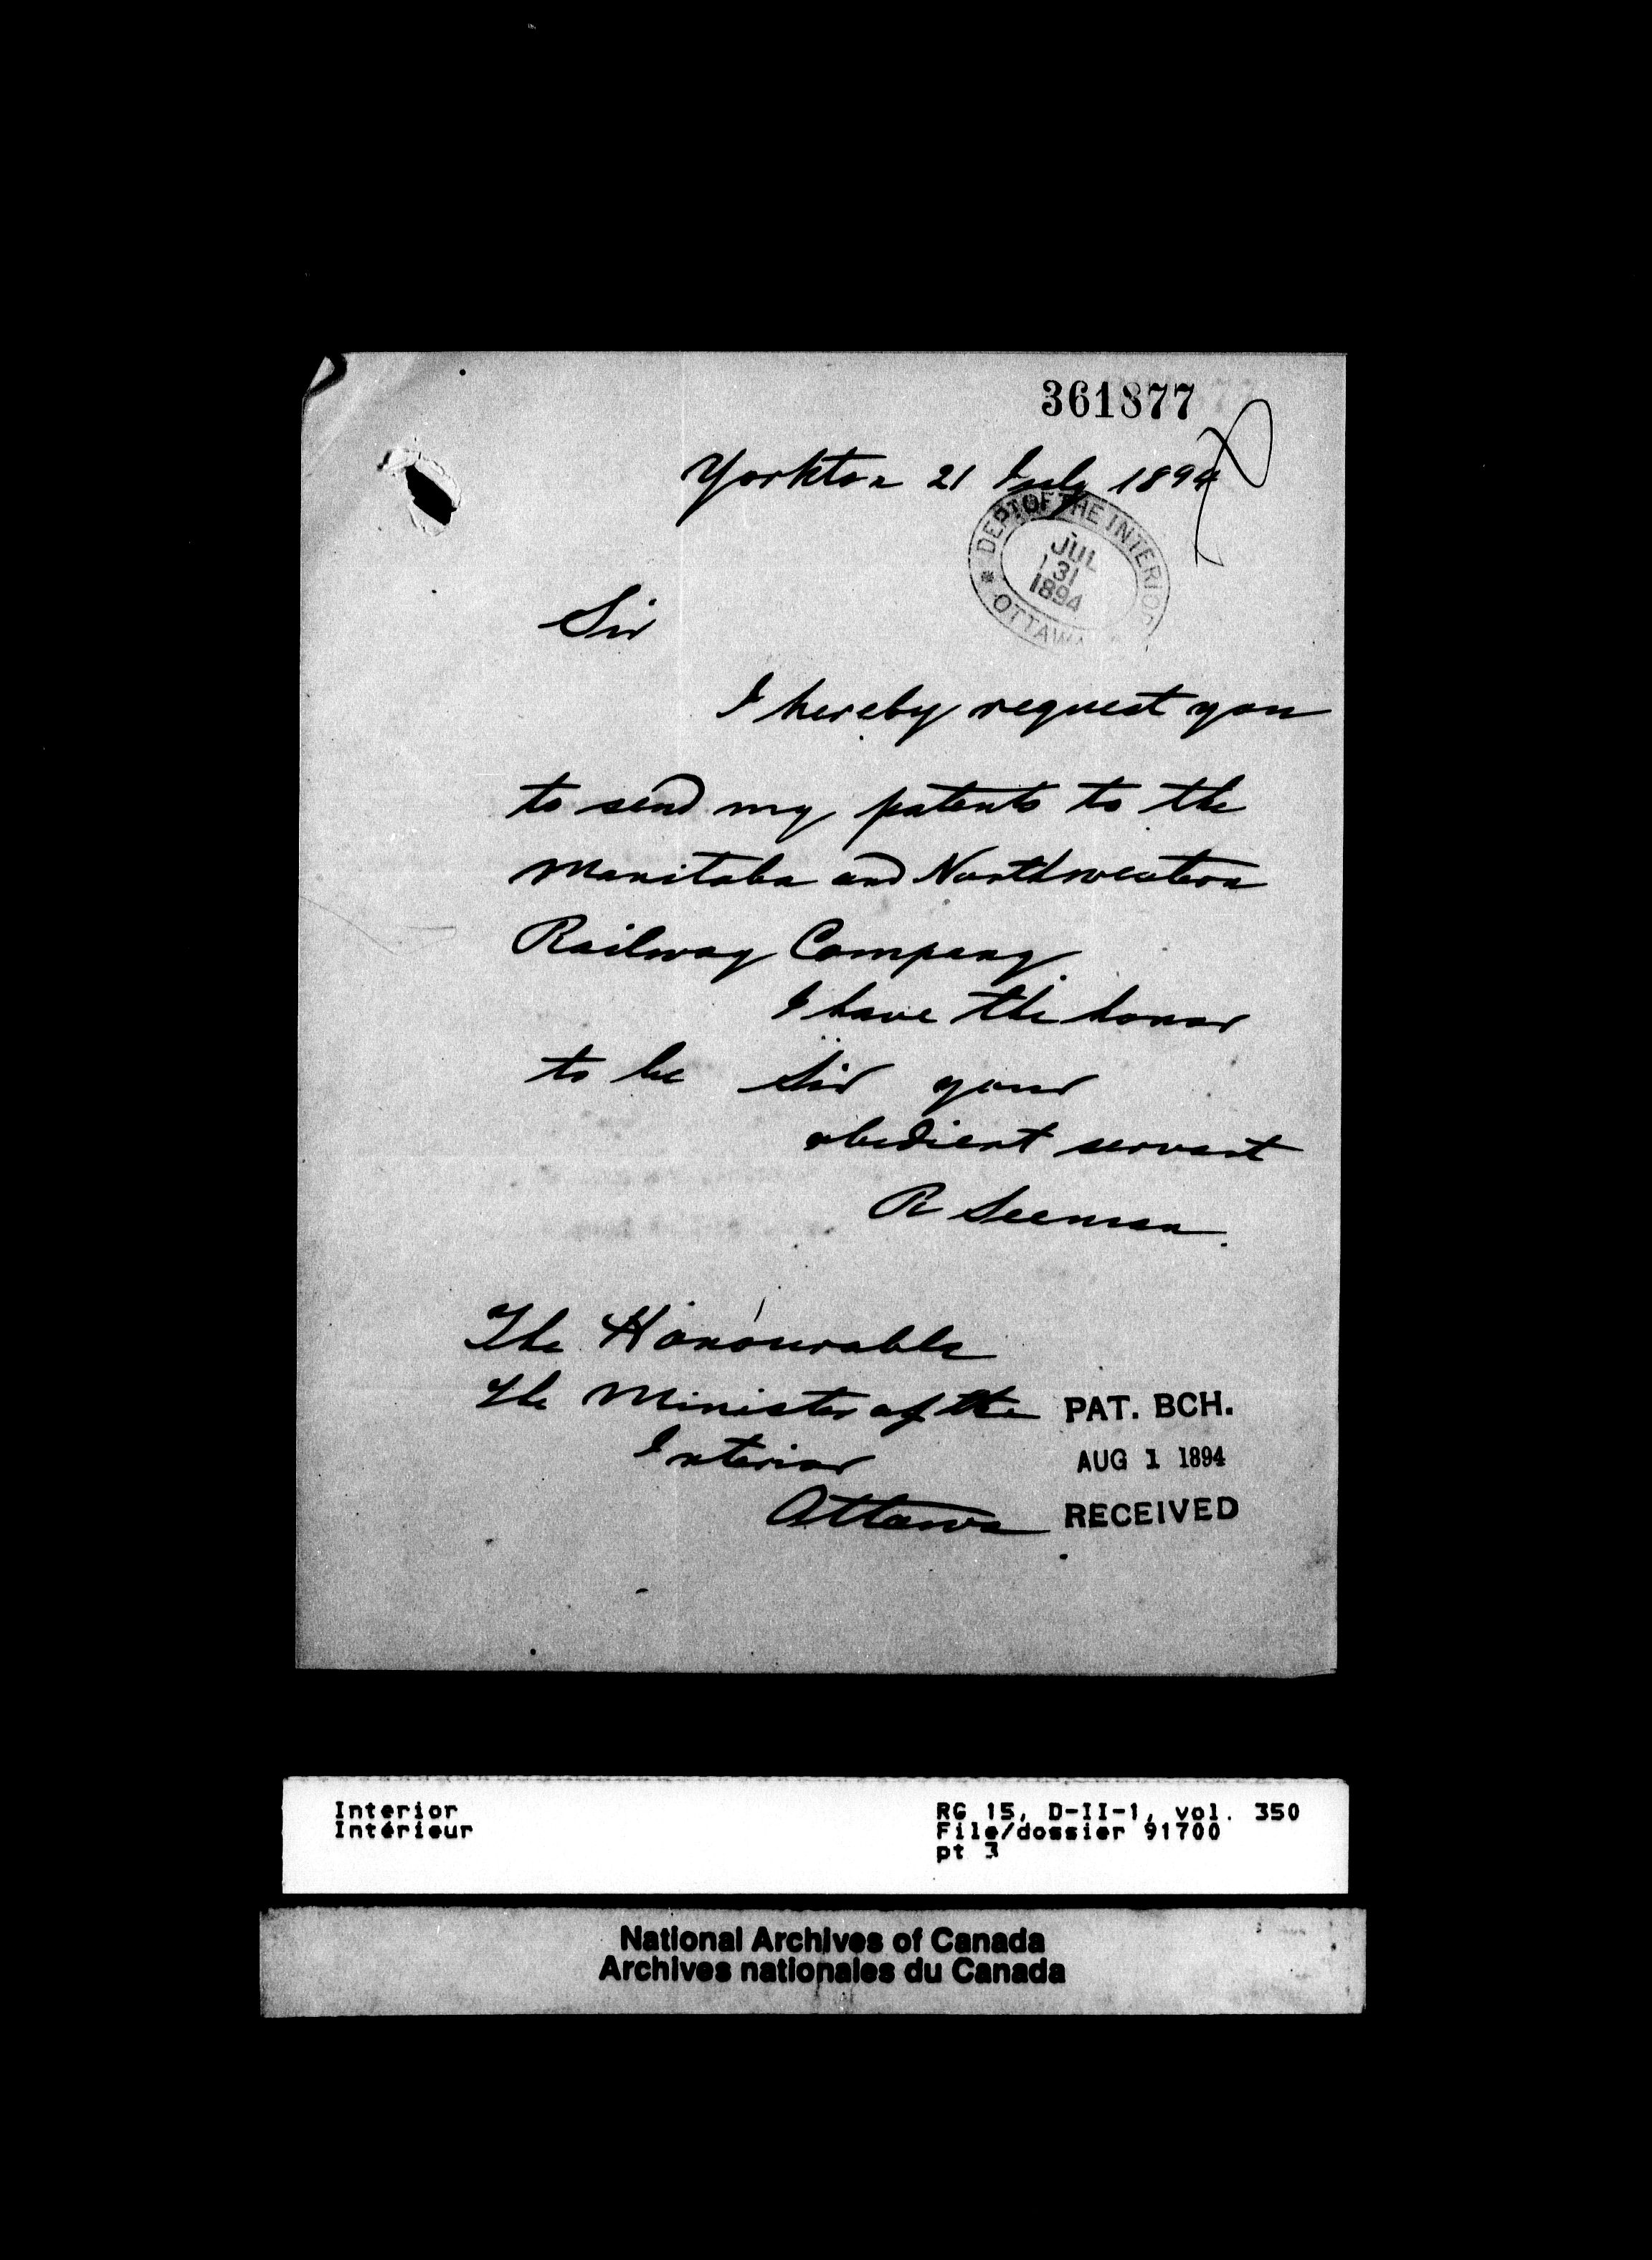 361877
Yorkton 21 July 1894
DEPT OF THE INTERIOR
JUL
31
1894
* OTTAWA
Sir
I hereby request you
to send my patents to the
Manitoba and Northwestern
Railway Company
I have the honor
to be Sir your
obedient servant
R Seeman
The Honourable
The Minister of the
Interior
Ottawa
PAT. BCH.
AUG 1 1894
RECEIVED
Interior
Intérieur
RG 15, D-II-1, vol. 350
File/dossier 91700
pt 3
National Archives of Canada
Archives nationales du Canada